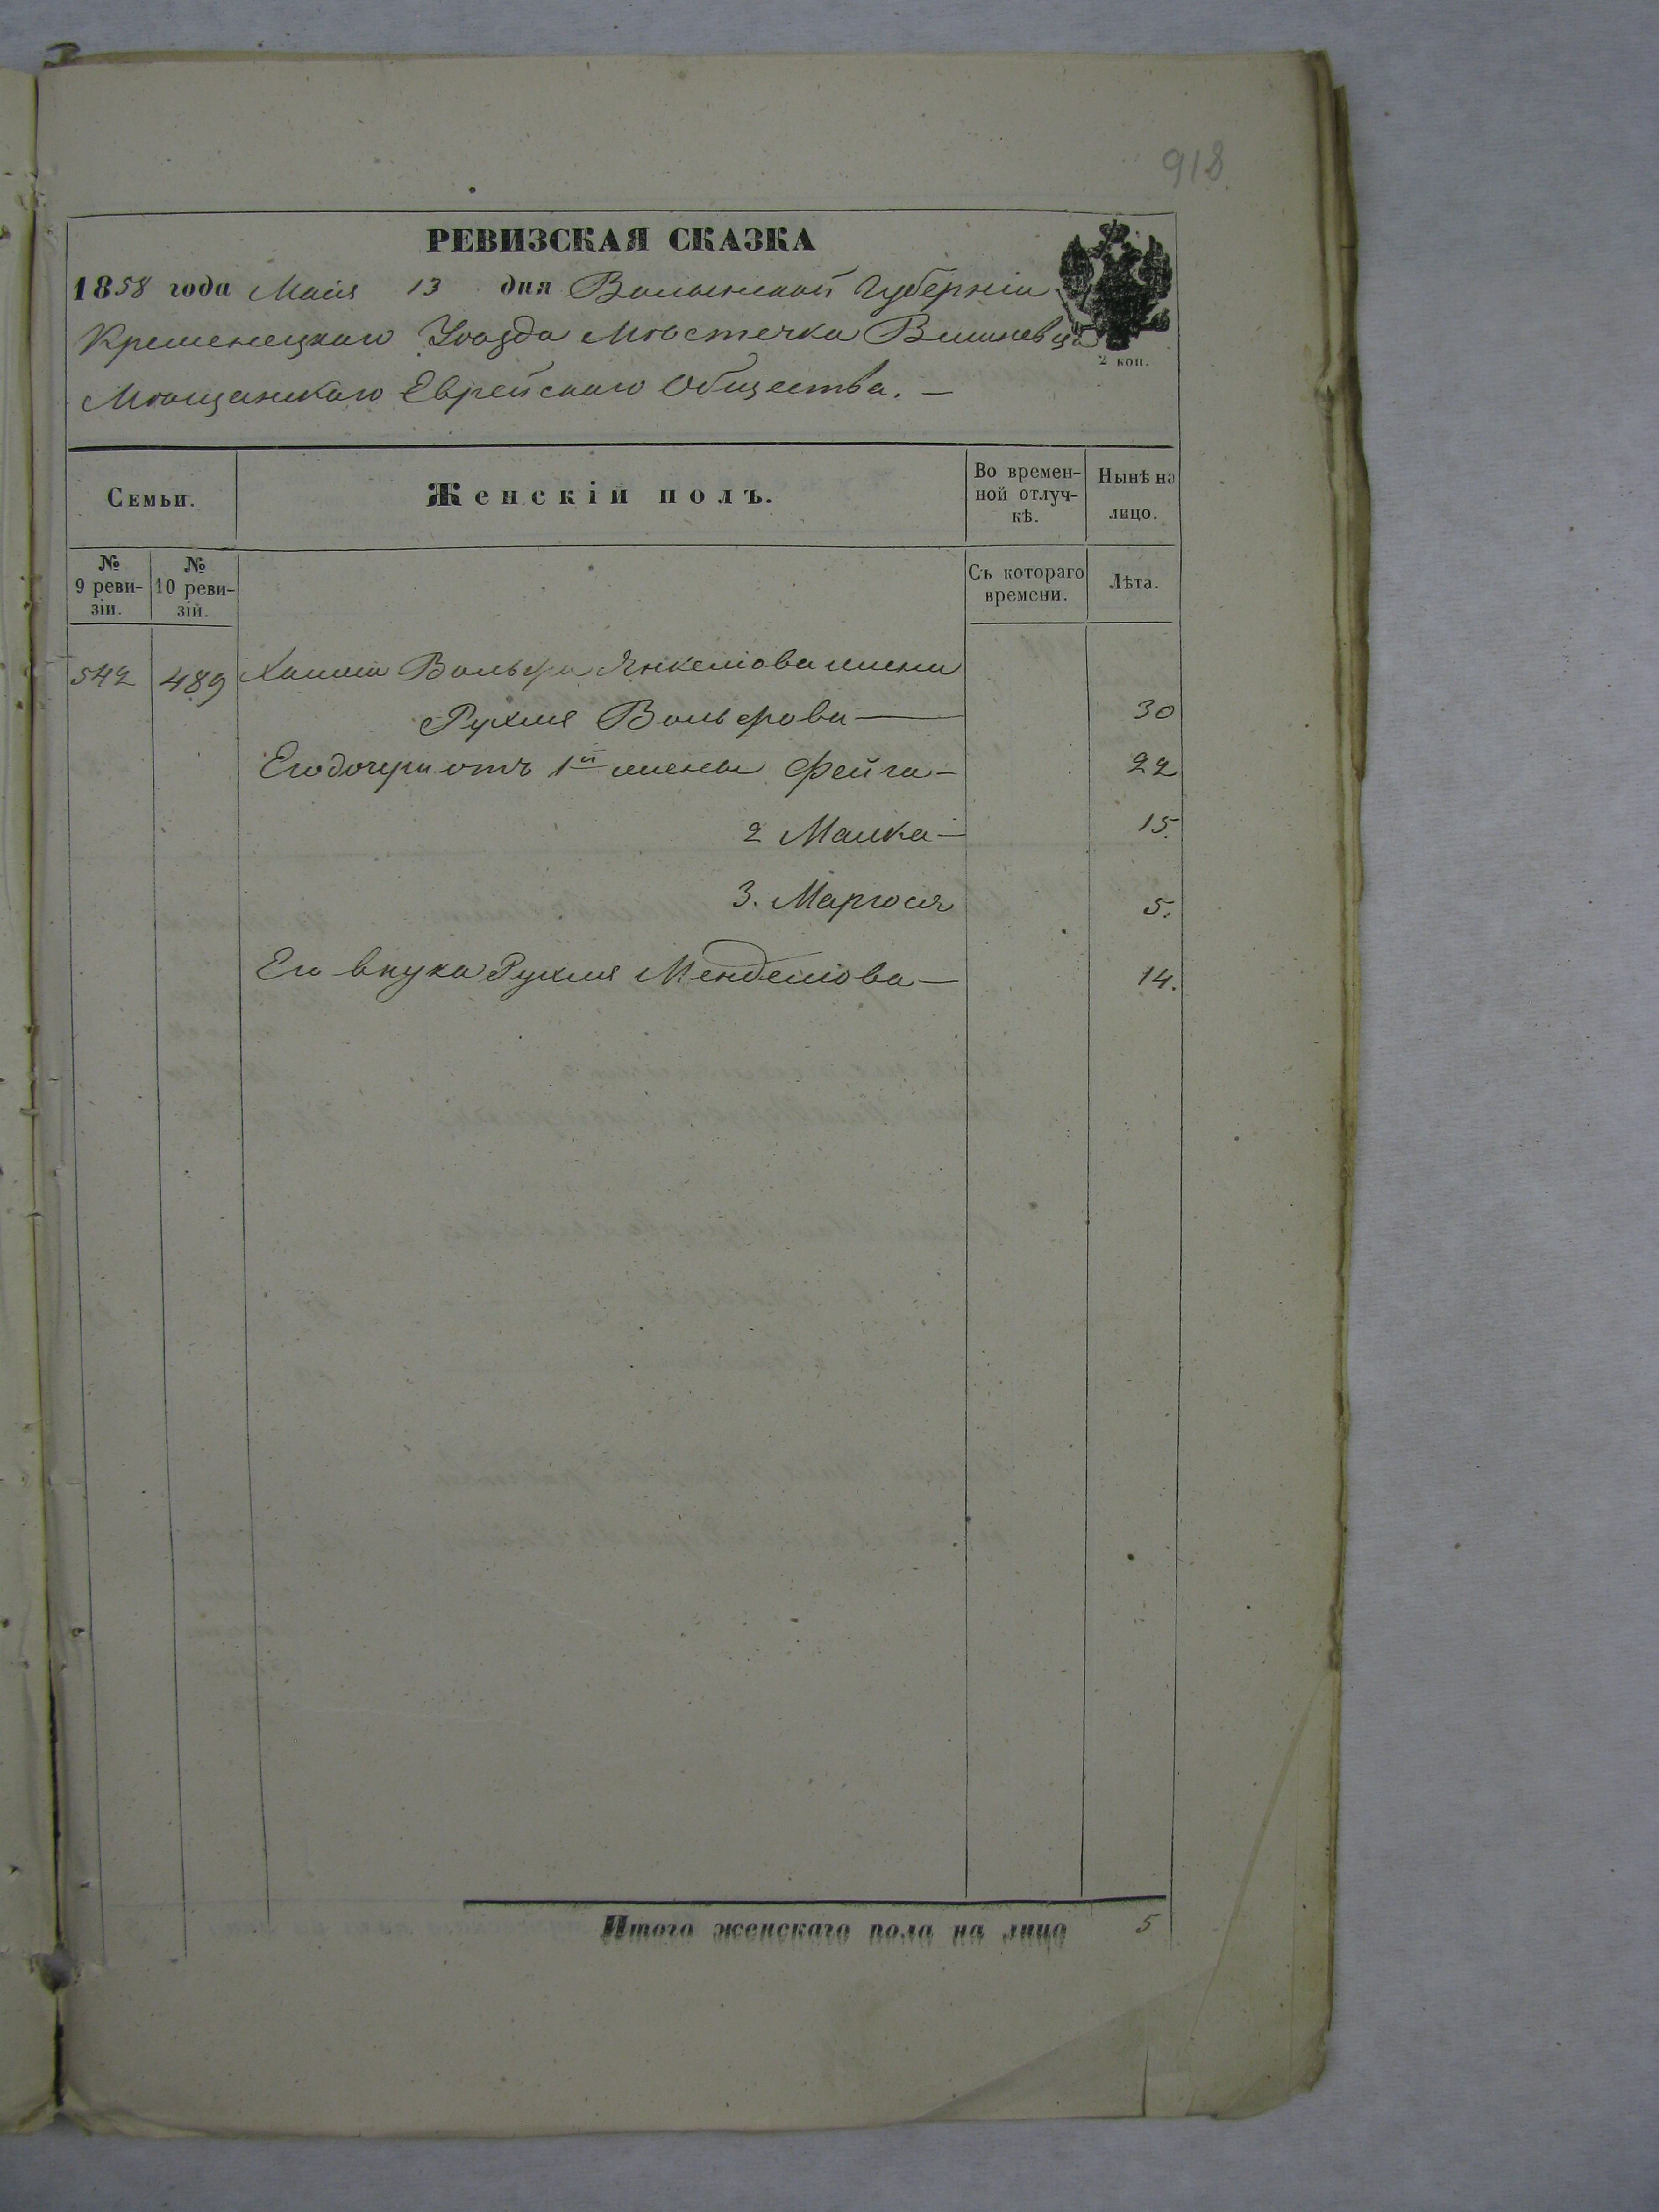 918
РЕВИЗСКАЯ СКАЗКА
1858 года Маія 13 дня Волынской Губерніи
Кременецкаго Уѣзда Мѣстечка Вишневца
2 коп.
Мѣщанскаго Еврейскаго Общества. —
Семьи.
Женскій полъ.
Во времен-
ной отлуч-
кѣ.
Нынѣ на
лицо.
№
9 реви-
зіи.
№
10 реви-
зіи.
Съ котораго
времени.
Лѣта.
542 489 Вольфа Янкелюва жена
Рухля Вольфова — 30
Его дочери отъ 1й жены Фейга — 22
2 Малка — 15.
3. Маргося 5.
Его внука Рухля Менделюва — 14.
Итого женскаго пола на лицо 5